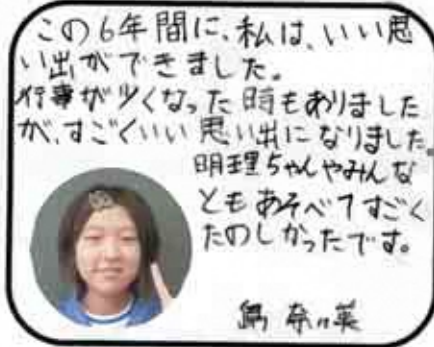 この6年間に、私は、いい思
い出ができました。
行事が少くなった時もありました
が、すごくいい思い出になりました。
明理ちゃんやみんな
ともあそべてすごく
たのしかったです。
奈々英